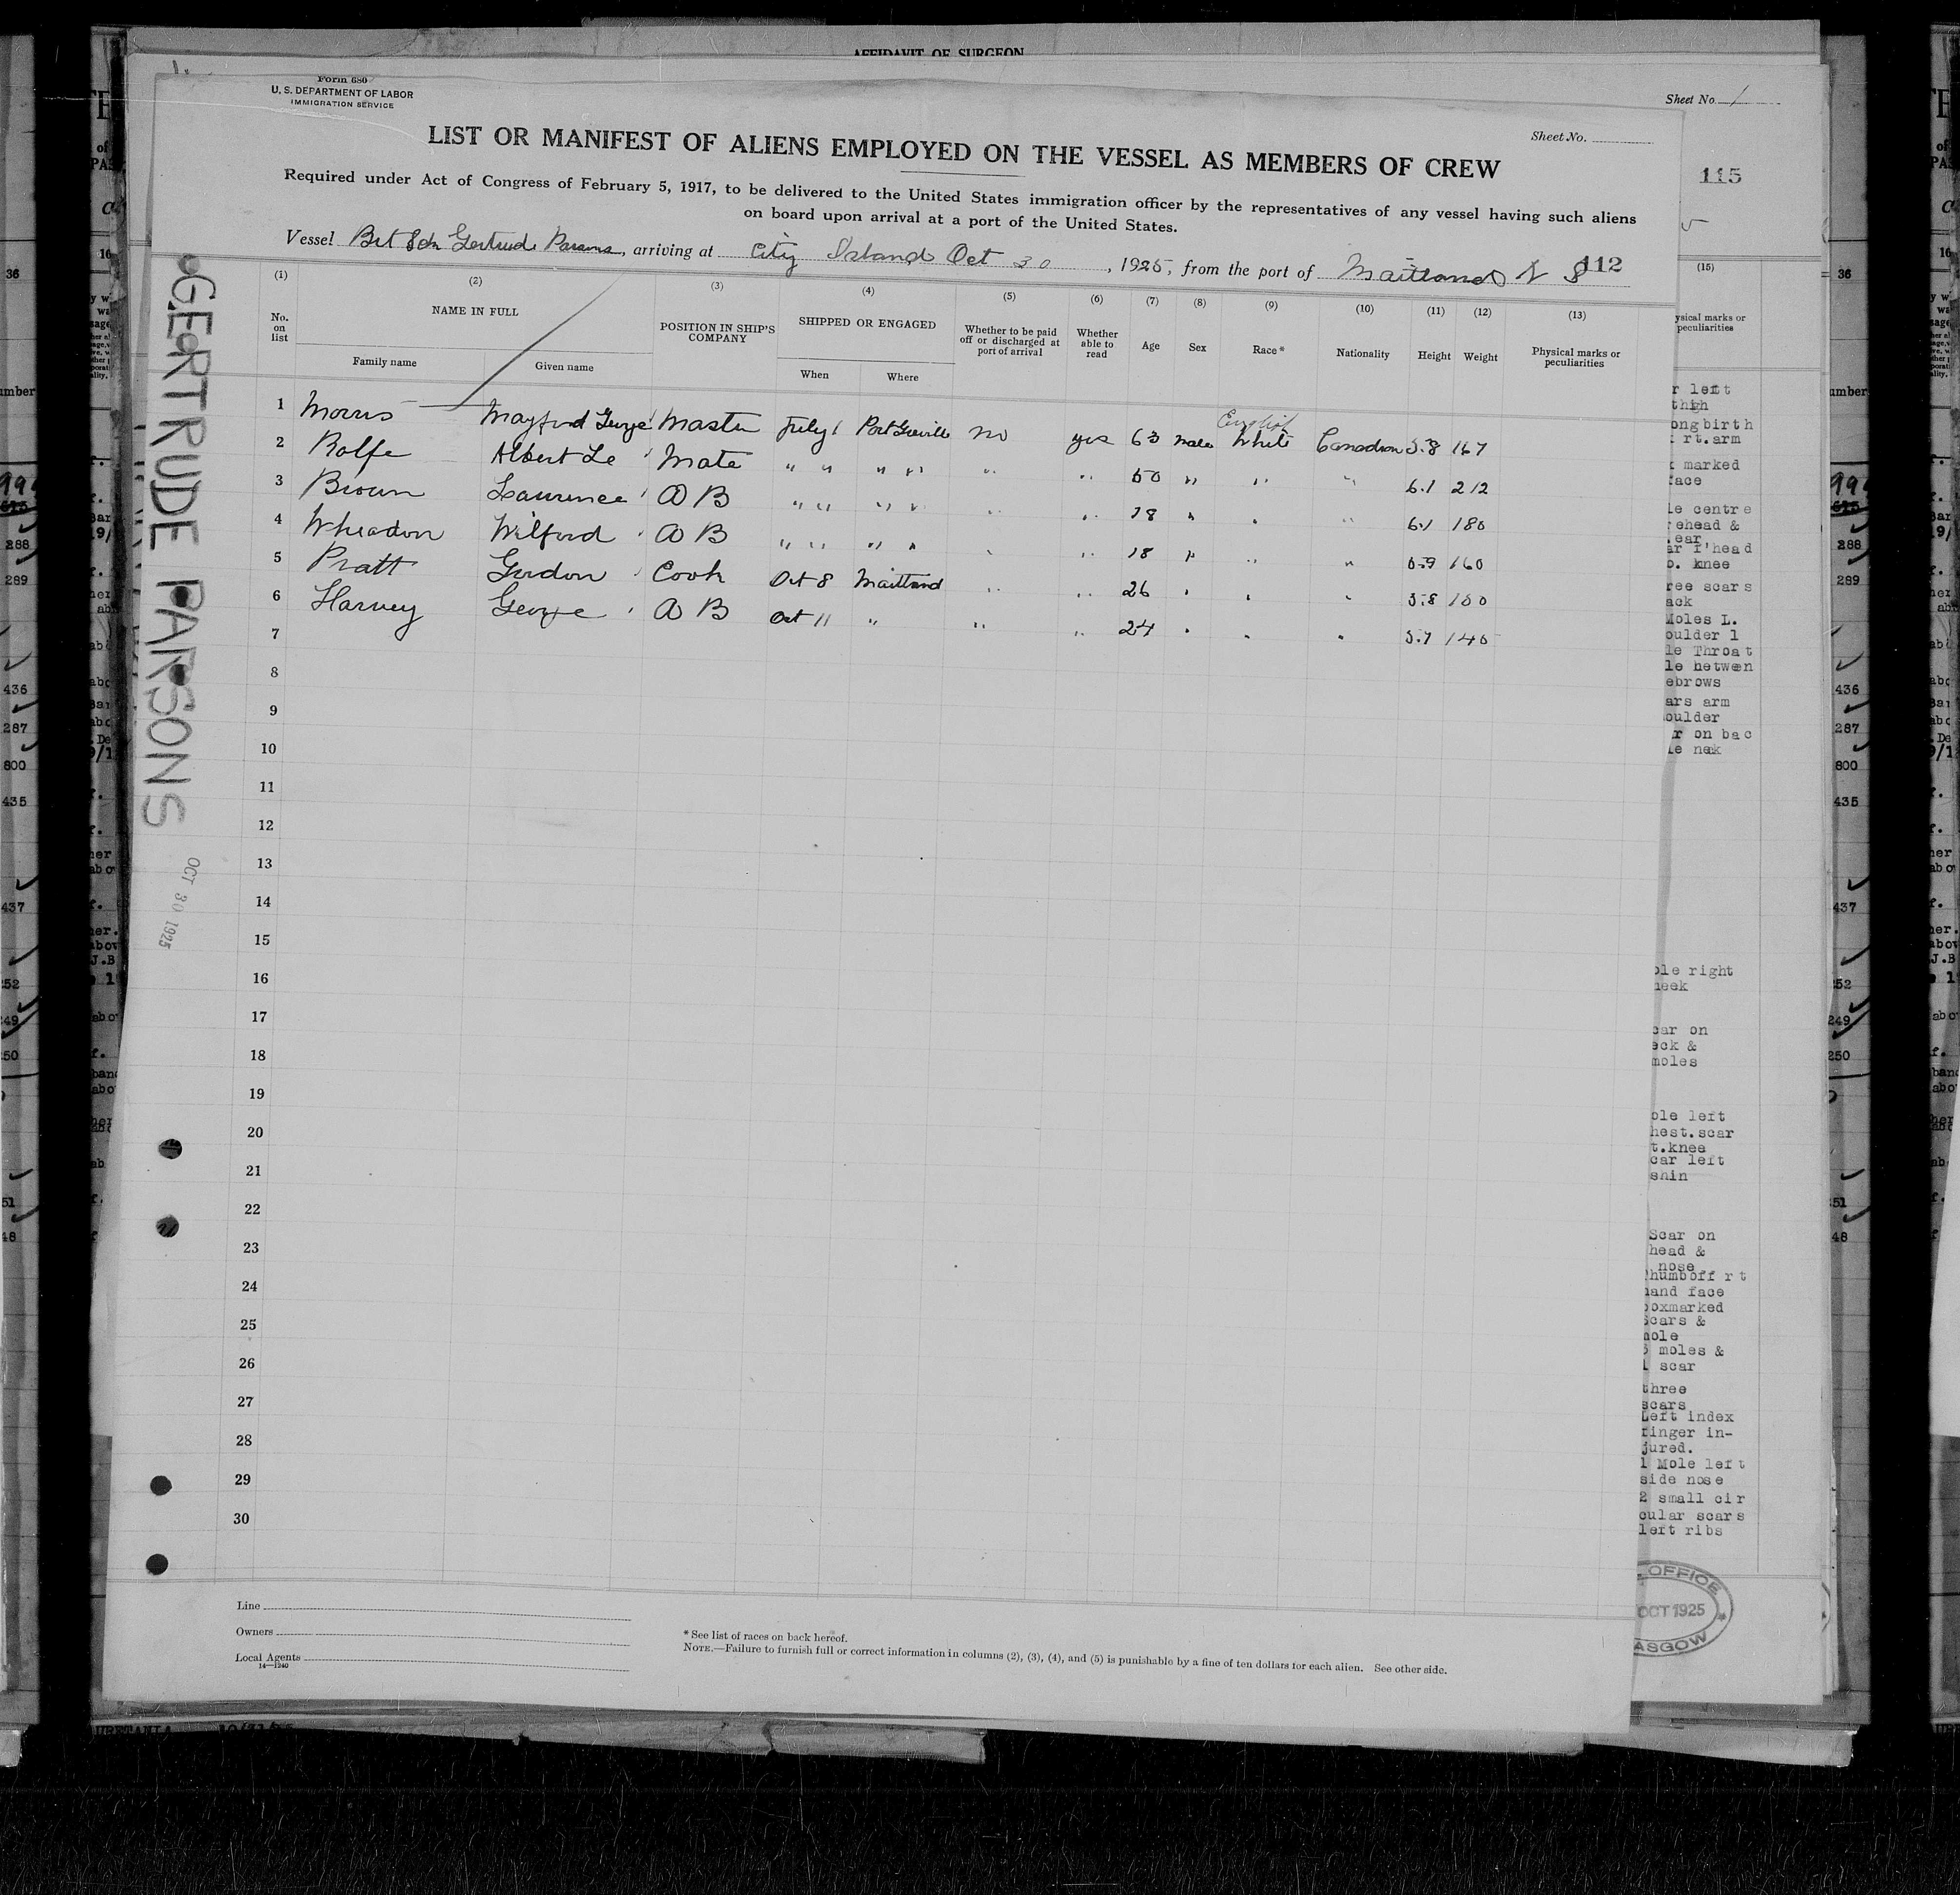 AFFIDAVIT OF SURGEON
Form 680
U. S. DEPARTMENT OF LABOR
IMMIGRATION SERVICE
Sheet No. 1
Sheet No.
LIST OR MANIFEST OF ALIENS EMPLOYED ON THE VESSEL AS MEMBERS OF CREW
115
Required under Act of Congress of February 5, 1917, to be delivered to the United States immigration officer by the representatives of any vessel having such aliens
on board upon arrival at a port of the United States.
Vessel Brt Sch Gertrude Parsons, arriving at City Island Oct 30, 1925, from the port of Maitland N S
112
(1) (2) (3) (4) (5) (6) (7) (8) (9) (10) (11) (12) (13) (15)
No. on list
NAME IN FULL
Family name
Given name
POSITION IN SHIP'S COMPANY
SHIPPED OR ENGAGED
When
Where
Whether to be paid off or discharged at port of arrival
Whether able to read
Age
Sex
Race*
Nationality
Height
Weight
Physical marks or peculiarities
ysical marks or peculiarities
English
1 Morris Mayford George Master July 1 Port Greville no yes 63 male White Canadian 5.8 167
2 Rolfe Albert Le Mate " " " " " " 50 " " " 6.1 212
3 Brown Laurence A B " " " " " " 18 " " " 6.1 180
4 Wheadon Wilford A B " " " " " " 18 " " " 5.9 160
5 Pratt Gordon Cook Oct 8 Maitland " " 26 " " " 5.8 180
6 Harvey George A B Oct 11 " " " 24 " " " 5.7 145
7
8
9
10
11
12
13
14
15
16
17
18
19
20
21
22
23
24
25
26
27
28
29
30
GERTRUDE PARSONS
OCT 30 1925
Line
Owners
Local Agents
14—1240
* See list of races on back hereof.
NOTE.—Failure to furnish full or correct information in columns (2), (3), (4), and (5) is punishable by a fine of ten dollars for each alien. See other side.
r left
thigh
ongbirth
rt.arm
marked
face
le centre
rehead &
ear
ar f'head
o. knee
ree scars
ack
Moles L.
oulder 1
le Throat
le between
ebrows
ars arm
oulder
r on bac
le nek
ole right
heek
car on
eck &
moles
ole left
hest.scar
t.knee
car left
shin
Scar on
head &
nose
humboff rt
hand face
poxmarked
Scars &
mole
moles &
1 scar
three
scars
Left index
finger in-
jured.
1 Mole left
side nose
2 small cir
cular scars
left ribs
OFFICE
OCT 1925
ASGOW